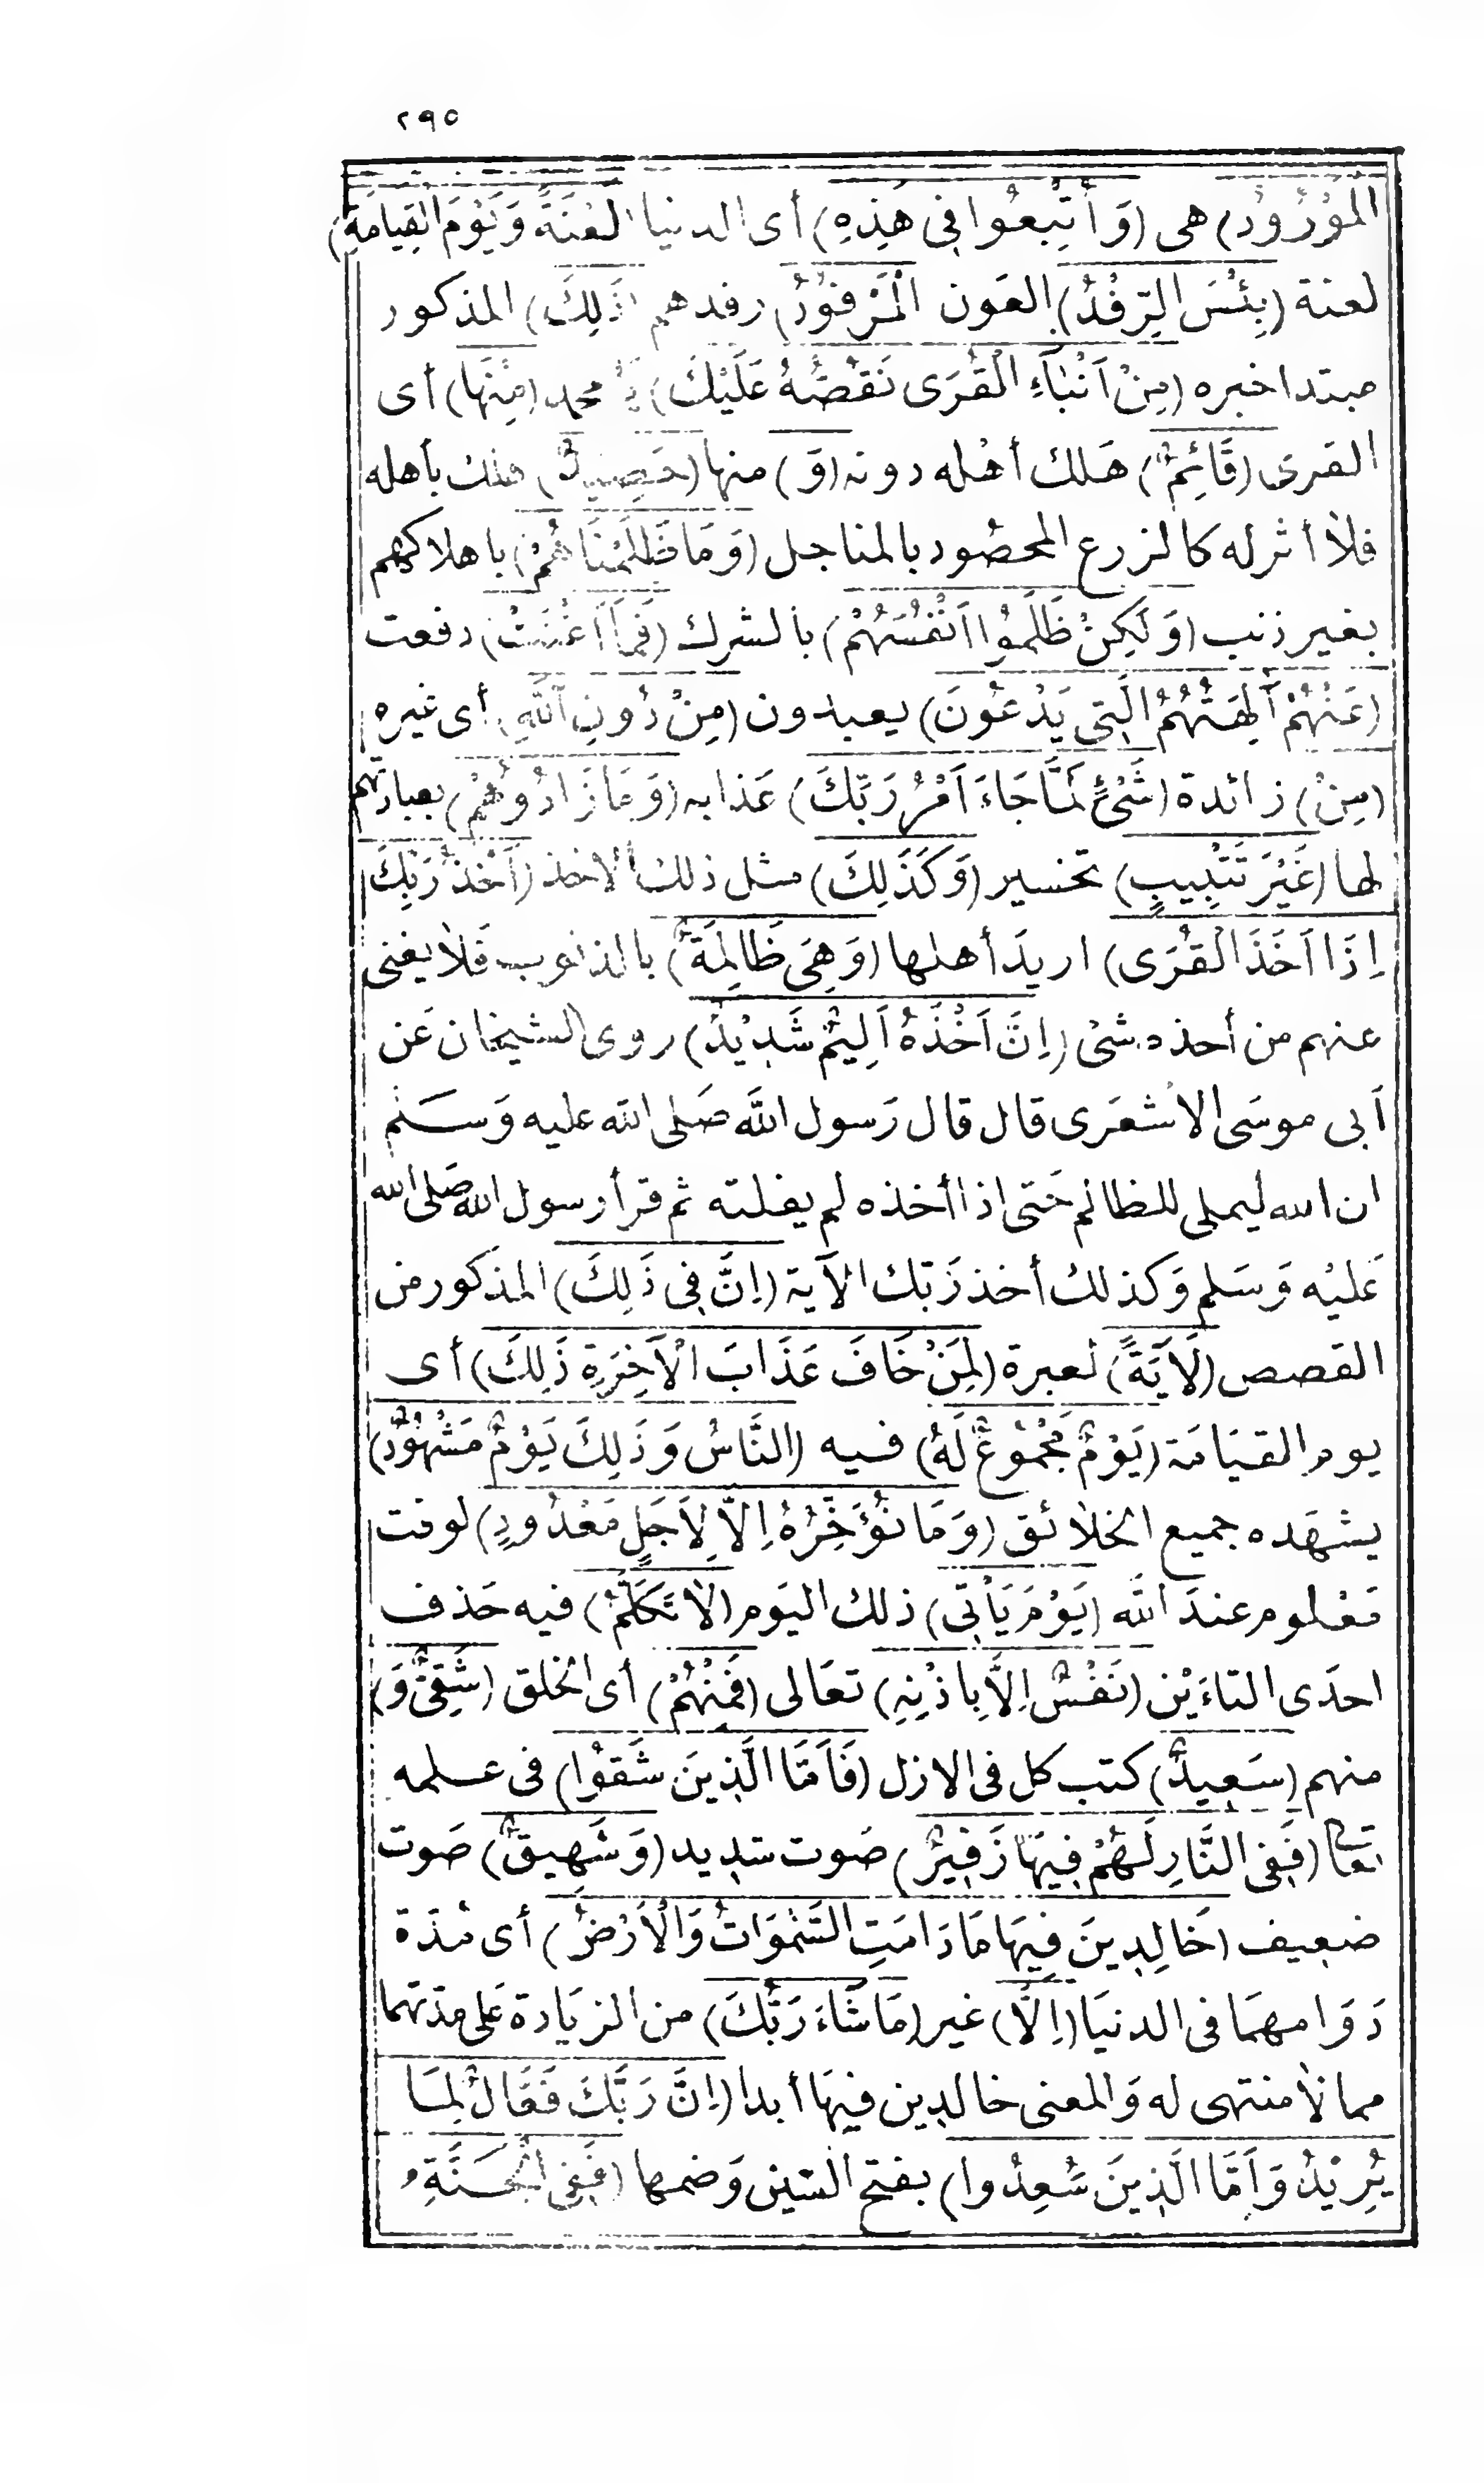 ٢٩٥
الْمَوْرُوْدُ) هى (وَأُتْبِعُوا فِى هٰذِهِ) أى الدنيا (لَعْنَةً وَيَوْمَ الْقِيَامَةِ)
لعنة (بِئْسَ الرِّفْدُ) العَون الْمَرْفُوْدُ) رفدهم (ذَلِكَ) المذكور
مبتدا خبره (مِنْ اَنْبَآءِ الْقُرَى نَقُصُّهُ عَلَيْكَ) يا محمد (مِنْهَا) أى
القرى (قَائِمٌ) هَلك أهْله دونه (وَ) منها (حَصِيدٌ) هلك بأهله
فلا أثر له كالزرع المحصُود بالمناجل (وَمَا ظَلَمْنَاهُمْ) باهلاكهم
بغير ذنب (وَلَكِنْ ظَلَمُوا اَنْفُسَهُمْ) بالشرك (فَمَا اَغْنَتْ) دفعت
(عَنْهُمْ آلِهَتُهُمُ الَّتِى يَدْعُوْنَ) يعبدون (مِنْ دُونِ اللّٰهِ) أى غيره
(مِنْ) زائدة (شَىْءٍ لَمَّا جَاءَ اَمْرُ رَبِّكَ) عَذابه (وَمَا زَادُوهُمْ) بعبادتهم
لها (غَيْرَ تَتْبِيبٍ) تخسير (وَكَذَلِكَ) مثل ذلك الاخذ (اَخْذُ رَبِّكَ
اِذَا اَخَذَ الْقُرَى) اريدَ أهلها (وَهِىَ ظَالِمَةٌ) بالذنوب فَلا يغنى
عنهم من أخذه شىْ (اِنَّ اَخْذَهُ اَلِيمٌ شَدِيْدٌ) روى الشيخان عَن
اَبى موسَى الاشعَرى قال قال رَسول اللّٰه صَلى الله عليه وَسَلم
ان الله ليملى للظالم حَتى اذا أخذه لم يفلته ثم قرأ رسول الله صَلى الله
عَليْه وَسَلم وَكذلك أخذ رَبك الآية (اِنَّ فِى ذَلِكَ) المذكور من
القصص (لَآيَةً) لعبرة (لِمَنْ خَافَ عَذَابَ الْآخِرَةِ ذَلِكَ) أى
يوم القيَامَة (يَوْمٌ مَجْمُوْعٌ لَهُ) فيه (النَّاسُ وَذَلِكَ يَوْمٌ مَشْهُوْدٌ)
يشهَده جميع الخلائق (وَمَا نُؤَخِّرُهُ اِلَّا لِاَجَلٍ مَعْدُودٍ) لوقت
مَعْلوم عندَ اللّٰه (يَوْمَ يَأْتِى) ذلك اليَوم (لَا تَكَلَّمُ) فيه حَذف
احدَى التاءَيْن (نَفْسٌ اِلَّا بِاِذْنِهِ) تعَالى (فَمِنْهُمْ) أى الخلق (شَقِىٌّ وَ)
منهم (سَعِيدٌ) كتب كل فى الازل (فَاَمَّا الَّذِينَ شَقُوْا) فى علمه
تعا (فَفِى النَّارِ لَهُمْ فِيهَا زَفِيْرٌ) صَوت شديد (وَشَهِيقٌ) صَوت
ضعيف (خَالِدِينَ فِيهَا مَا دَامَتِ السَّمٰوَاتُ وَالْاَرْضُ) أى مُدَة
دَوَامهمَا فى الدنيَا (اِلَّا) غير (مَا شَاءَ رَبُّكَ) من الزيَادة عَلى مدتهما
مما لا منتهى له وَالمعنى خالدين فيهَا أبدا (اِنَّ رَبَّكَ فَعَّالٌ لِمَا
يُرِيْدُ وَاَمَّا الَّذِينَ سُعِدُوا) بفتح السّين وَضمها (فَفِى الْجَنَّةِ